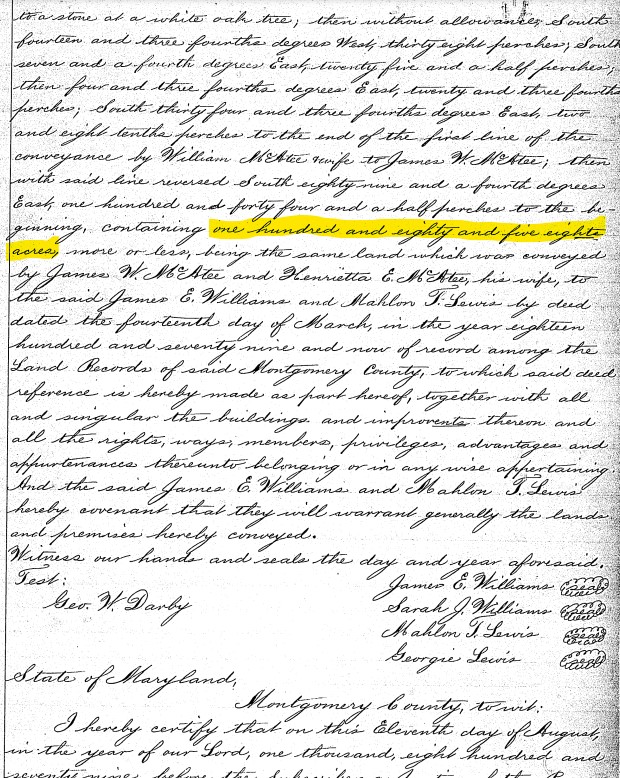 to a stone at a white oak tree; then without allowance, South
fourteen and three fourths degrees West, thirty eight perches; South
seven and a fourth degrees East, twenty five and a half perches;
then four and three fourths degrees East, twenty and three fourths
perches; South thirty four and three fourths degrees East, two
and eight tenths perches to the end of the first line of the
conveyance by William McAtee & wife to James W. McAtee; then
with said line reversed South eighty nine and a fourth degrees
East, one hundred and forty four and a half perches to the be-
ginning, containing one hundred and eighty and five eights
acres, more or less, being the same land which was conveyed
by James W. McAtee and Henrietta E. McAtee, his wife, to
the said James E. Williams and Mahlon T. Lewis by deed
dated the fourteenth day of March, in the year eighteen
hundred and seventy nine and now of record among the
Land Records of said Montgomery County, to which said deed
reference is hereby made as part hereof, together with all
and singular the buildings and improvents thereon and
all the rights, ways, members, privileges, advantages and
appurtenances thereunto belonging or in any wise appertaining.
And the said James E. Williams and Mahlon T. Lewis
hereby covenant that they will warrant generally the lands
and premises hereby conveyed.
Witness our hands and seals the day and year aforesaid.
Test: James E. Williams seal
Geo. W. Darby Sarah J. Williams seal
Mahlon T. Lewis seal
Georgie Lewis seal
State of Maryland,
Montgomery County, to wit:
I hereby certify that on this Eleventh day of August,
in the year of our Lord, one thousand, eight hundred and
seventy nine, before the Subscriber